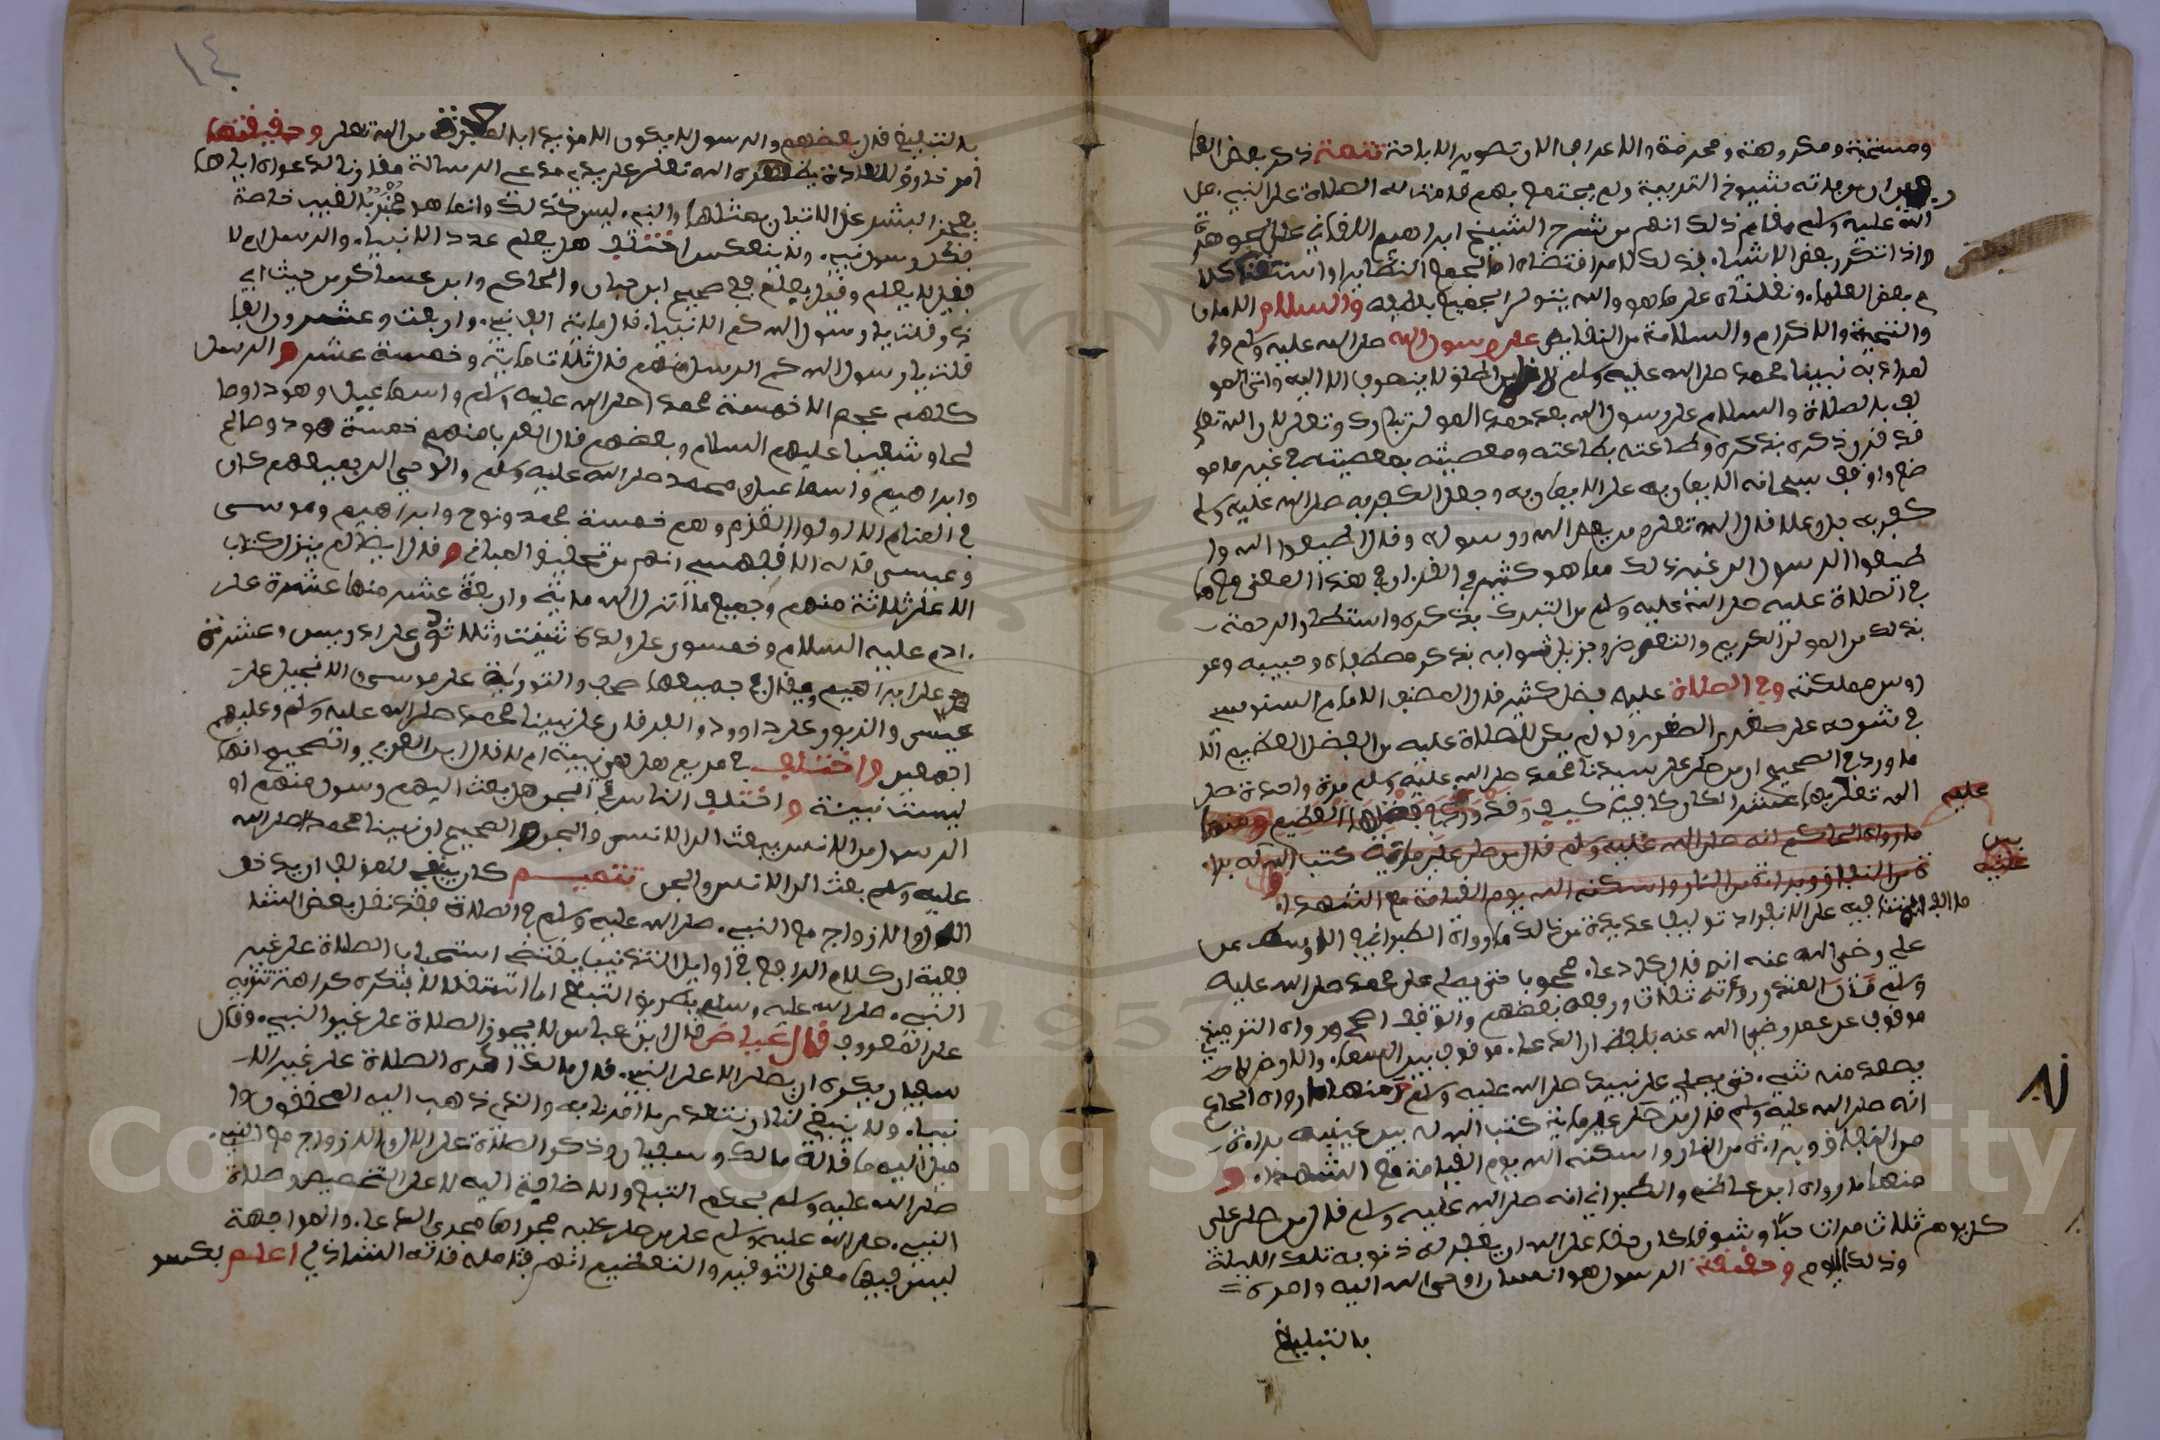 ومستحبة ومكروهة ومحرمة والاعراب الا ان تصوير الاباحة تتمة ذكر بعض العلما
ان من فاته شيوخ التربية ولم يجتمع بهم قامت له الصلاة على النبي صلى
الله عليه وسلم مقام ذلك انهم من شرح الشيخ ابراهيم اللقاني على الجوهرة
واذا تكرر بعض الاشياء فذلك لامر اقتضاه اما لجمع النظاير او
بعض العلماء ونقلناه على ما هو والله يتولى الجميع بلطفه والسلام الامان
والتحية والاكرام والسلامة من النقايص على رسول الله صلى الله عليه وسلم
نبينا محمد صلى الله عليه وسلم
بالصلاة والسلام على رسول الله بعد حمد المولى تبارك وتعالى لان الله تعالى
قد قرن ذكره بذكره وطاعته بطاعته ومعصيته بمعصيته في غير ما مو
ضع واوقف سبحانه الايمان به على الايمان به وجعل الكفر به صلى الله عليه وسلم
كفر به جل وعلا فقال الله تعالى ومن يعص الله ورسوله وقال اطيعوا الله وا
طيعوا الرسول الى غير ذلك مما هو كثير في القرءان في هذا المعنى مع ما
في الصلاة عليه صلى الله عليه وسلم من التبرك بذكره واستمطار الرحمة
بذلك من المولى الكريم والتعرض لجزيل ثوابه بذكر مصطفاه وحبيبه وعر
روس مملكته وفي الصلاة عليه فضل كثير قال المصنف الامام السنوسي
في شرحه على صغرى الصغرى ولو لم يكن للصلاة عليه من الفضل العظيم الا
ما ورد في الصحيح ان من صلى على سيدنا محمد صلى الله عليه وسلم مرة واحدة صلى
الله تعالى بها عشرا لكان كافيا كيف وقد ورد في فضلها العظيم ومنها
ما رواه الحاكم انه صلى الله عليه وسلم قال من صلى علي ماية كتب الله له برا
ة من النفاق وبراءة من النار واسكنه الله يوم القيامة مع الشهداء و
عليه
بين
عينيه
ما الف الناس فيه على الانفراد تواليف عديدة من ذلك ما رواه الطبراني في الاوسط عن
علي رضي الله عنه انه قال كل دعاء محجوب حتى يصلى على محمد صلى الله عليه
وسلم قال المنذري رواته ثقات ورفعه بعضهم والوقف اصح ورواه الترمذي
موقوف عن عمر رضي الله عنه بلفظ ان الدعاء موقوف بين السماء والارض لا
يصعد منه شيء حتى يصلى على نبيك صلى الله عليه وسلم ومنها ما رواه الحاكم
انه صلى الله عليه وسلم قال من صلى علي ماية كتب الله له بين عينيه براءة
من النفاق وبراءة من النار واسكنه الله يوم القيامة مع الشهداء و
منها ما رواه ابن عاصم والطبراني انه صلى الله عليه وسلم قال من صلى علي
كل يوم ثلاث مرات حبا وشوقا كان حقا على الله ان يغفر له ذنوبه تلك الليلة
وذلك اليوم وحقيقة الرسول هو انسان اوحى الله اليه وامره
بالتبليغ
١٤
بالتبليغ قال بعضهم والرسول لا يكون الا مؤيدا بالمعجزة من الله تعالى وحقيقتها
امر خارق للعادة يظهره الله تعالى على يدي مدعي الرسالة مقارنا لدعواه اياها
يعجز البشر عن الاتيان بمثلها والنبي ليس كذلك وانما هو مخبر بالغيب خاصة
فكل رسول نبي ولا ينعكس اختلف هل يعلم عدد الانبياء والرسل ام لا
فقيل لا يعلم وقيل يعلم ففي صحيح ابن حبان والحاكم وابن عساكر من حديث ابي
ذر قلت يا رسول الله كم الانبياء قال ماية الف نبي واربعة وعشرون الفا
قلت يا رسول الله كم الرسل منهم قال ثلاثماية وخمسة عشر و الرسل
كلهم عجم الا خمسة محمد صلى الله عليه وسلم واسماعيل وهودا وصا
لحا وشعيبا عليهم السلام وبعضهم قال العرب منهم خمسة هود وصالح
وابراهيم واسماعيل ومحمد صلى الله عليه وسلم والوحي الى جميعهم كان
في المنام الا اولوا العزم وهم خمسة محمد ونوح وابراهيم وموسى
وعيسى قاله الاقفهسي انهم من تحقيق المباني و قال لم ينزل كتاب
الا على ثلاثة منهم وجميع ما انزل الله ماية واربعة عشر منها عشرة على
ءادم عليه السلام وخمسون على ولده شيث وثلاثون على ادريس وعشرة
على ابراهيم ويقال في جميعها صحف والتورية على موسى والانجيل على
عيسى والزبور على داوود والفرقان على نبينا محمد صلى الله عليه وسلم وعليهم
اجمعين واختلف في مريم هل هي نبية ام لا قال ابن العربي والصحيح انها
ليست نبية و اختلف الناس في الجن هل بعث اليهم رسول منهم او
الرسول من الانس يبعث الى الانس والجن و الصحيح ان نبينا محمدا صلى الله
عليه وسلم بعث الى الانس والجن تتميم كان ينبغي للمؤلف ان يذكر
الال والازواج مع النبي صلى الله عليه وسلم في الصلاة فقد نقل بعض الفضلا
فقيه ان كلام الراجح في اوايل التذنيب يقتضي استحباب الصلاة على غير
النبي صلى الله عليه وسلم بطريق التبع اما استقلالا فتكره كراهة تنزيه
على المعروف قال عياض قال ابن عباس لا يجوز الصلاة على غير النبي وقال
سفيان يكره ان يصلى الا على النبي قال مالك اكره الصلاة على غير الا
نبياء ولا ينبغي لنا ان نتعدى ما امرنا به والذي ذهب اليه المحققون وا
ميل اليه ما قاله مالك وسفيان وذكر الصلاة على الال والازواج مع النبي
صلى الله عليه وسلم بحكم التبع والاضافة اليه لا على التخصيص وصلاة
النبي صلى الله عليه وسلم على من صلى عليه مجراها مجرى الدعاء والمواجهة
ليس فيها معنى التوقير والتعظيم انتهى فتامله قاله الشاذلي اعلم بكسر
Copyright © King Saud University
1957